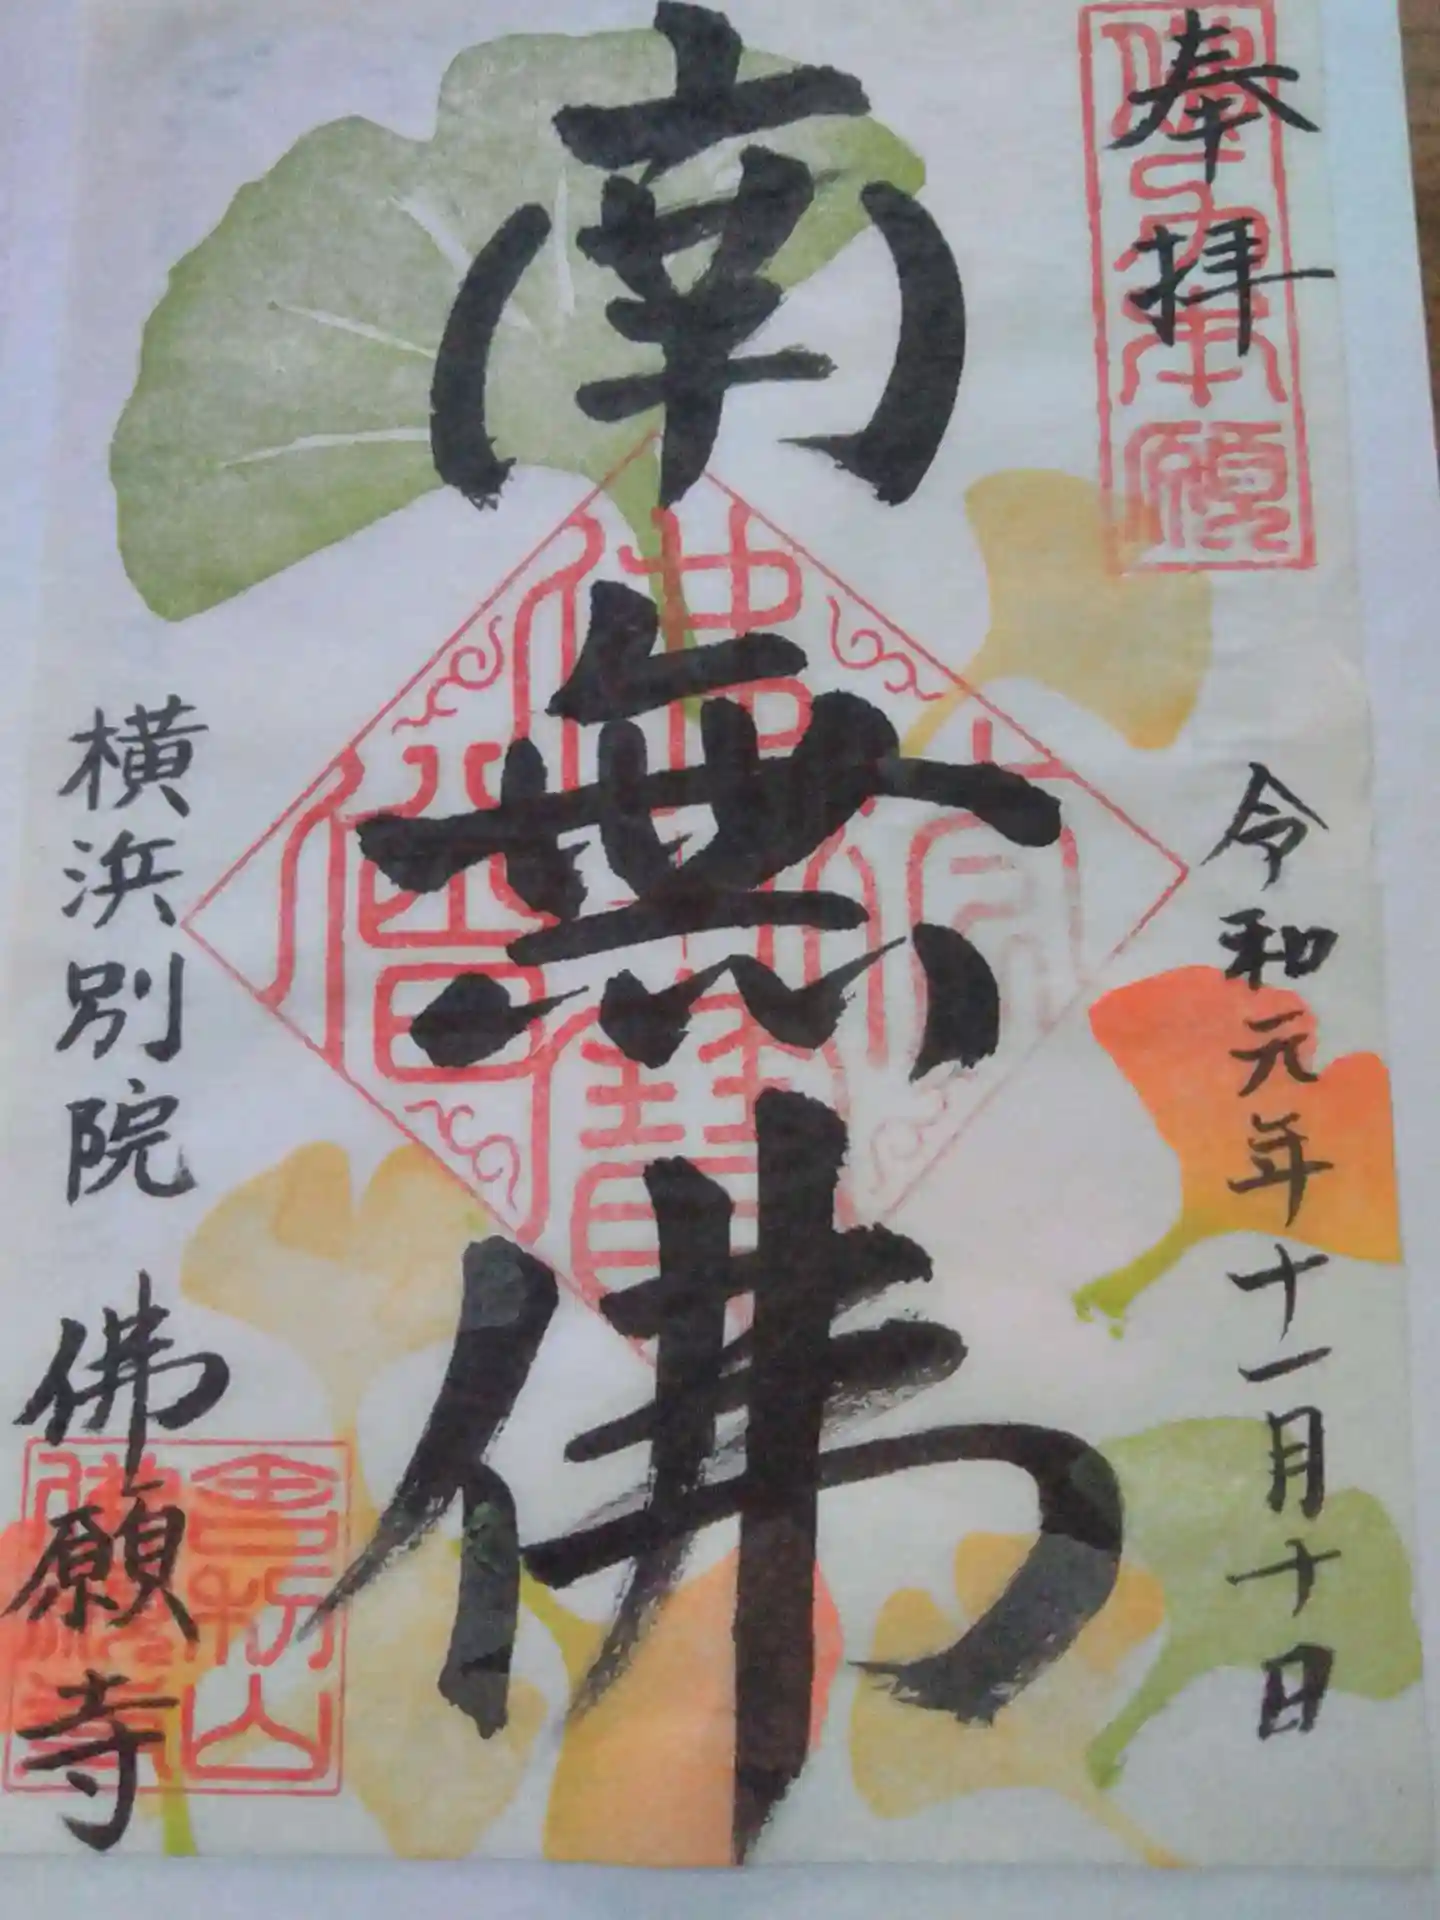 奉拝
令和元年十一月十日
南無佛
横浜別院 佛願寺
佛法僧寳